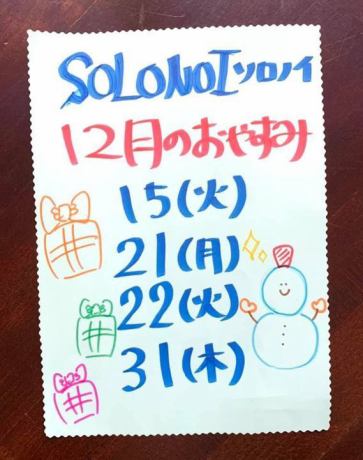 SOLONOIソロノイ
12月のおやすみ
15(火)
21(月)
22(火)
31(木)